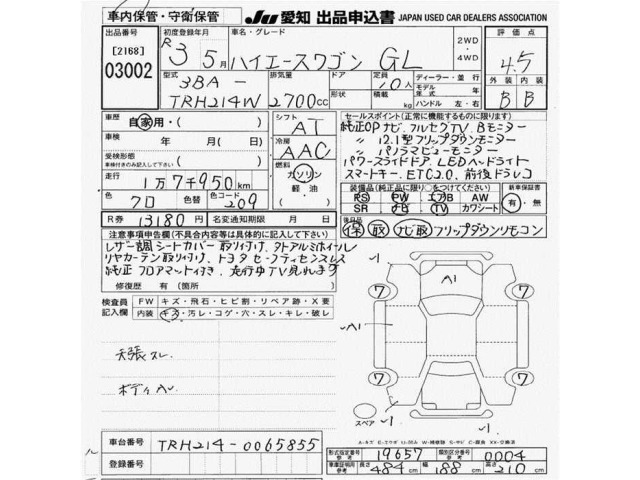 車内保管・守衛保管
JU 愛知 出品申込書 JAPAN USED CAR DEALERS ASSOCIATION
出品番号 [2168] 03002
初度登録年月 R3 5月
車名・グレード ハイエースワゴン GL
2WD・4WD
評価点 4.5
外装 内装 B B
型式 3BA-TRH214W
排気量 2700cc
ドア 形状
定員 10人 積載 kg
ディーラー・並行
モデル年式 年
ハンドル 左・右
車歴 自家用・( )
シフト AT
車検 年 月( 日)
受検形態 車検付きのみ記入して下さい ( )
冷房 AAC
走行 1万7千950km
燃料 ガソリン 軽油 ( )
色 クロ 色替 色コード 209
R券 13180円 名変通知期限 月 日
セールスポイント(正常に機能するものに限ります)
純正OP ナビ、フルセグTV、Bモニター
〃 12.1型フリップダウンモニター
〃 パノラマビューモニター
パワースライドドア、LEDヘッドライト
スマートキー、ETC2.0、前後ドラレコ
装備品(純正品に限り○をつけてください)
PS PW エアB AW
SR ナビ TV カワシート
新車保証書 有・無
後日品 保 取 ナビ取 フリップダウンリモコン
注意事項申告欄(不具合等は具体的に記入して下さい)
レザー調シートカバー取り付け、外アルミホイール
リヤカーテン取り付け、トヨタセーフティセンスレス
純正フロアマット付き、走行中TV見れます
修復歴 有 (箇所 )
検査員記入欄
FW キズ・飛石・ヒビ割・リペア跡・X要
内装 キズ・汚レ・コゲ・穴・スレ・キレ・破レ
天張スレ
ボディAU
A1
A1
7 7
7 7
1
1
スペア
A-キズ E-エクボ U-凹み W-補修跡 S-サビ C-腐食 XX-交換済
車台番号 TRH214-0065855
登録番号
形式指定番号 参考 19657
類別区分番号 参考 0004
車庫証明用 参考 長さ 484cm 幅 188cm 高さ 210cm